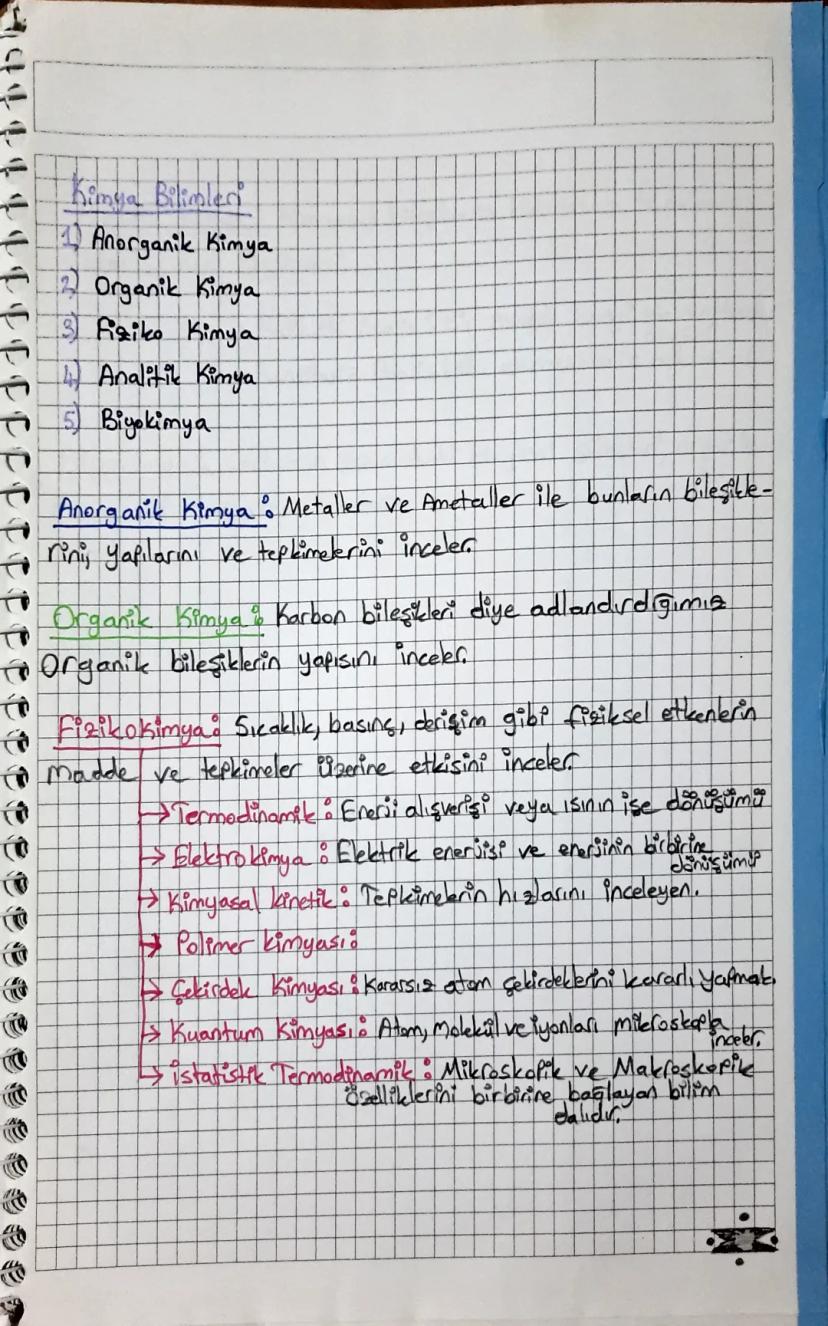 Kimya Bilimleri
1) Anorganik Kimya
2) Organik Kimya
3) Fiziko Kimya
4) Analitik Kimya
5) Biyokimya
Anorganik Kimya: Metaller ve Ametaller ile bunların bileşikle-
rini, yapılarını ve tepkimelerini inceler.
Organik Kimya: Karbon bileşikleri diye adlandırdığımız
Organik bileşiklerin yapısını inceler.
Fizikokimya: Sıcaklık, basınç, derişim gibi fiziksel etkenlerin
madde ve tepkimeler üzerine etkisini inceler.
→ Termodinamik: Enerji alışverişi veya ısının işe dönüşümü
→ Elektrokimya: Elektrik enerjisi ve enerjinin birbirine
dönüşümü
→ Kimyasal kinetik: Tepkimelerin hızlarını inceleyen.
→ Polimer kimyası:
→ Çekirdek Kimyası: Kararsız atom çekirdeklerini kararlı yapmak.
→ Kuantum Kimyası: Atom, molekül ve iyonları mikroskopla
inceler.
→ İstatistik Termodinamik: Mikroskopik ve Makroskopik
özelliklerini birbirine bağlayan bilim
dalıdır.